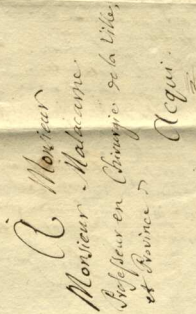 À Monsieur
Monsieur Malacarne
Professeur en Chirurgie de la Ville,
et Province
Acqui.